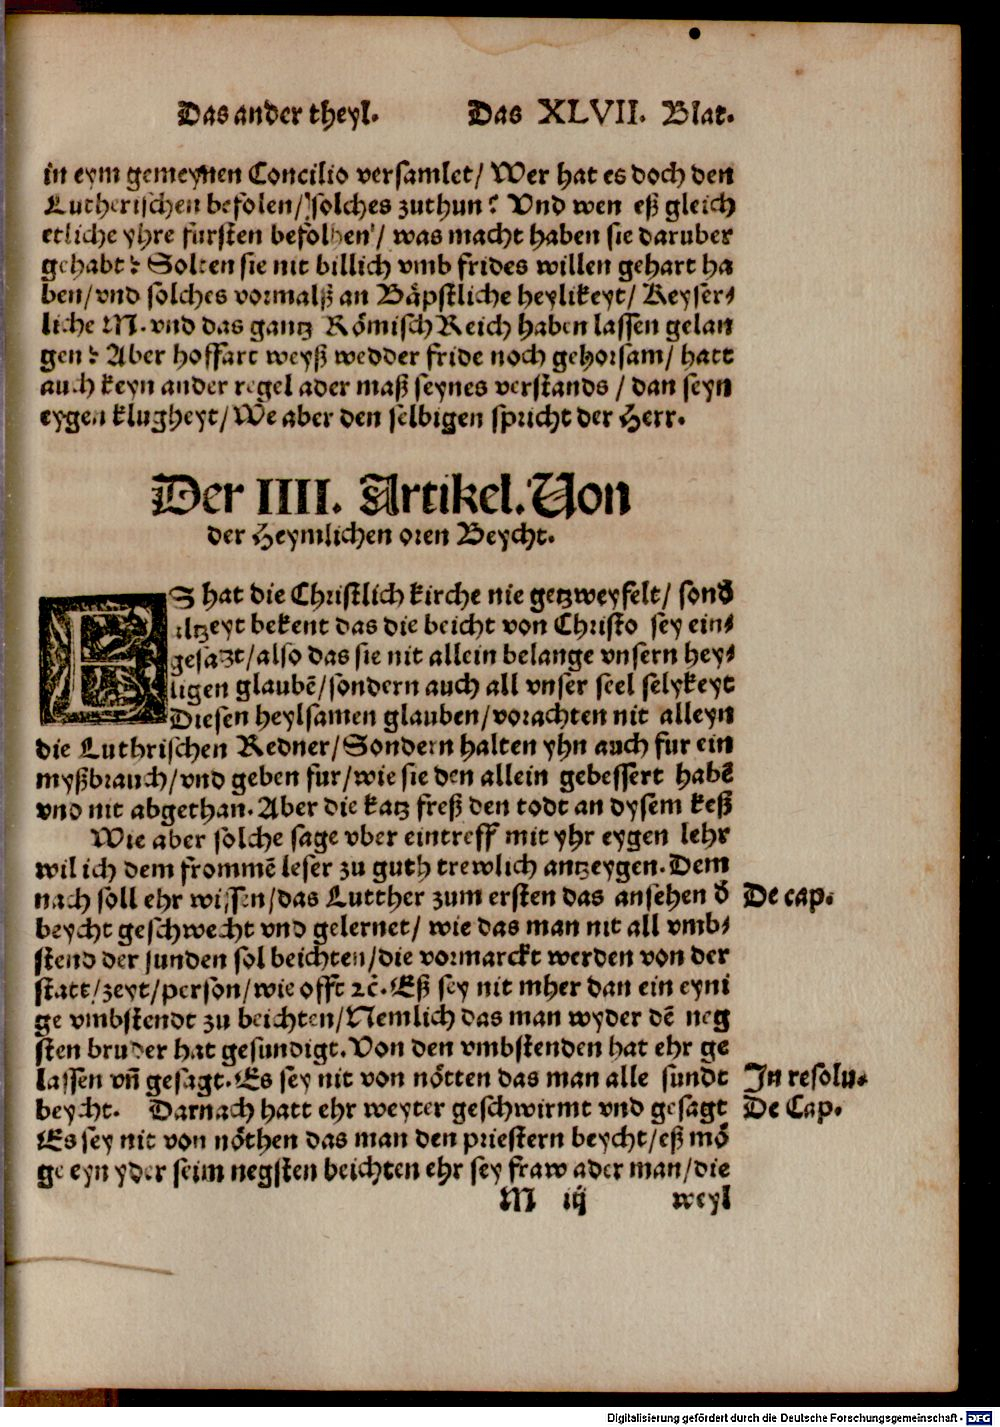 Das ander theyl. Das XLVII. Blat.
in eym gemeynen Concilio versamlet/ Wer hat es doch den
Lutherischen befolen/ solches zuthun? Vnd wen eß gleich
etliche yhre fursten befolhen/ was macht haben sie daruber
gehabt? Solten sie nit billich vmb frides willen gehart ha
ben/vnd solches vormalß an Bäpstliche heylikeyt/ Keyser⸗
liche M. vnd das gantz Römisch Reich haben lassen gelan
gen? Aber hoffart weyß wedder fride noch gehorsam/ hatt
auch keyn ander regel ader maß seynes verstands / dan seyn
eygen klugheyt/ We aber den selbigen spricht der Herr.
Der IIII. Artikel. Von
der Heymlichen oren Beycht.
ES hat die Christlich kirche nie getzweyfelt/ sond̄
altzeyt bekent das die beicht von Christo sey ein⸗
gesatzt/also das sie nit allein belange vnsern hey⸗
ligen glaubē/sondern auch all vnser seel selykeyt
Diesen heylsamen glauben/vorachten nit alleyn
die Luthrischen Redner/Sondern halten yhn auch fur ein
myßbrauch/vnd geben fur/wie sie den allein gebessert habē
vnd nit abgethan. Aber die katz freß den todt an dysem keß
Wie aber solche sage vber eintreff mit yhr eygen lehr
wil ich dem frommē leser zu guth trewlich antzeygen. Dem
nach soll ehr wissen/das Lutther zum ersten das ansehen d̄
De cap.
beycht geschwecht vnd gelernet/ wie das man nit all vmb⸗
stend der sunden sol beichten/die vormarckt werden von der
statt/zeyt/person/wie offt ꝛc̄. Eß sey nit mher dan ein eyni
ge vmbstendt zu beichten/Nemlich das man wyder dē neg
sten bruder hat gesundigt. Von den vmbstenden hat ehr ge
lassen vn̄ gesagt. Es sey nit von nötten das man alle sundt
In resolu.
beycht. Darnach hatt ehr weyter geschwirmt vnd gesagt
De Cap.
Es sey nit von nöthen das man den priestern beycht/eß mö
ge eyn yder seim negsten beichten ehr sey fraw ader man/die
M iij weyl
Digitalisierung gefördert durch die Deutsche Forschungsgemeinschaft - DFG